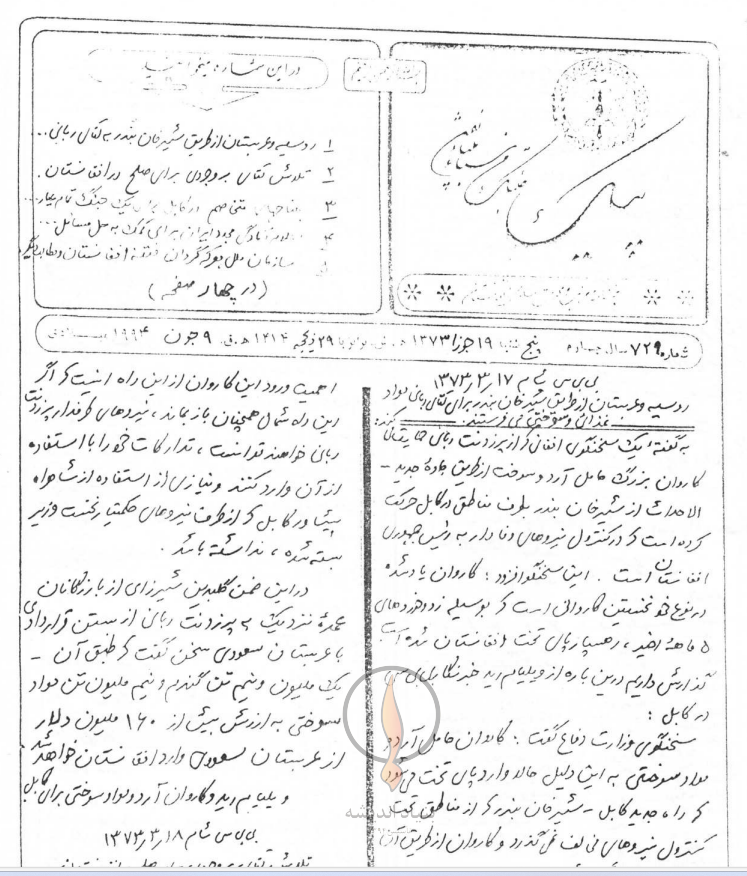 در این شماره میخوانید
۱ روسیه و عربستان از طریق شیرخان بندر به آقای ربانی...
۲ تلاش آقای بروجردی برای صلح در افغانستان.
۳ جناحهای متخاصم در کابل برای یک جنگ تمام عیار...
۴ آمادگی ایران برای کمک به حل مسائل...
۵ سازمان ملل افغانستان و مطالب دیگر.
(در چهار صفحه)
پیک
شماره ۷۲۹ سال چهارم پنج شنبه ۱۹ جوزا ۱۳۷۳ ه.ش. برابر با ۲۹ ذیحجه ۱۴۱۴ ه.ق. ۹ جون ۱۹۹۴ میلادی
بی بی سی شام ۱۷ر۳ر۱۳۷۳
روسیه و عربستان از طریق شیرخان بندر برای آقای ربانی مواد
غذائی و سوختی می فرستند.
به گفته یک سخنگوی افغان که از پرزدنت ربانی حمایت میکند:
کاروان بزرگ حامل آرد و سوخت از طریق جادهٔ جدید –
الاحداث از شیرخان بندر بطرف مناطق در کابل حرکت
کرده است که در کنترول نیروهای وفادار به رئیس جمهوری
افغانستان است. این سخنگو افزود: کاروان یاد شده
در نوع خود نخستین کاروانی است که بوسیله زد و خوردهای
۵ ماههٔ اخیر، رهسپار پای تخت افغانستان شده است
گزارش داریم درین باره از ویلیام رید خبرنگار بی بی سی
در کابل:
سخنگوی وزارت دفاع گفت: کاروان حامل آرد و
مواد سوختی به این دلیل حالا وارد پای تخت می شود
که راه جدید کابل – شیرخان بندر که از مناطق تحت
کنترول نیروهای مخالف نمی گذرد و کاروان از طریق آن
اهمیت ورود این کاروان از این راه اینست که اگر
این راه شمال همچنان باز بماند، نیروهای طرفدار پرزدنت
ربانی خواهند توانست، تدارکات خود را با استفاده
از آن وارد کنند و نیازی از استفاده از شاهراه
پیشاور کابل که از طرف نیروهای حکمتیار نخست وزیر
بسته شده، نداشته باشد.
در این ضمن گلبدین شیرزای از بازرگانان
عمدهٔ نزدیک به پرزدنت ربانی از بستن قراردادی
با عربستان سعودی سخن گفت که طبق آن –
یک ملیون و نیم تن گندم و نیم ملیون تن مواد
سوختی به ارزش بیش از ۱۶۰ ملیون دلار
از عربستان سعودی وارد افغانستان خواهد شد.
ویلیام رید و کاروان آرد و مواد سوختی برای کابل
بی بی سی شام ۱۸ر۳ر۱۳۷۳